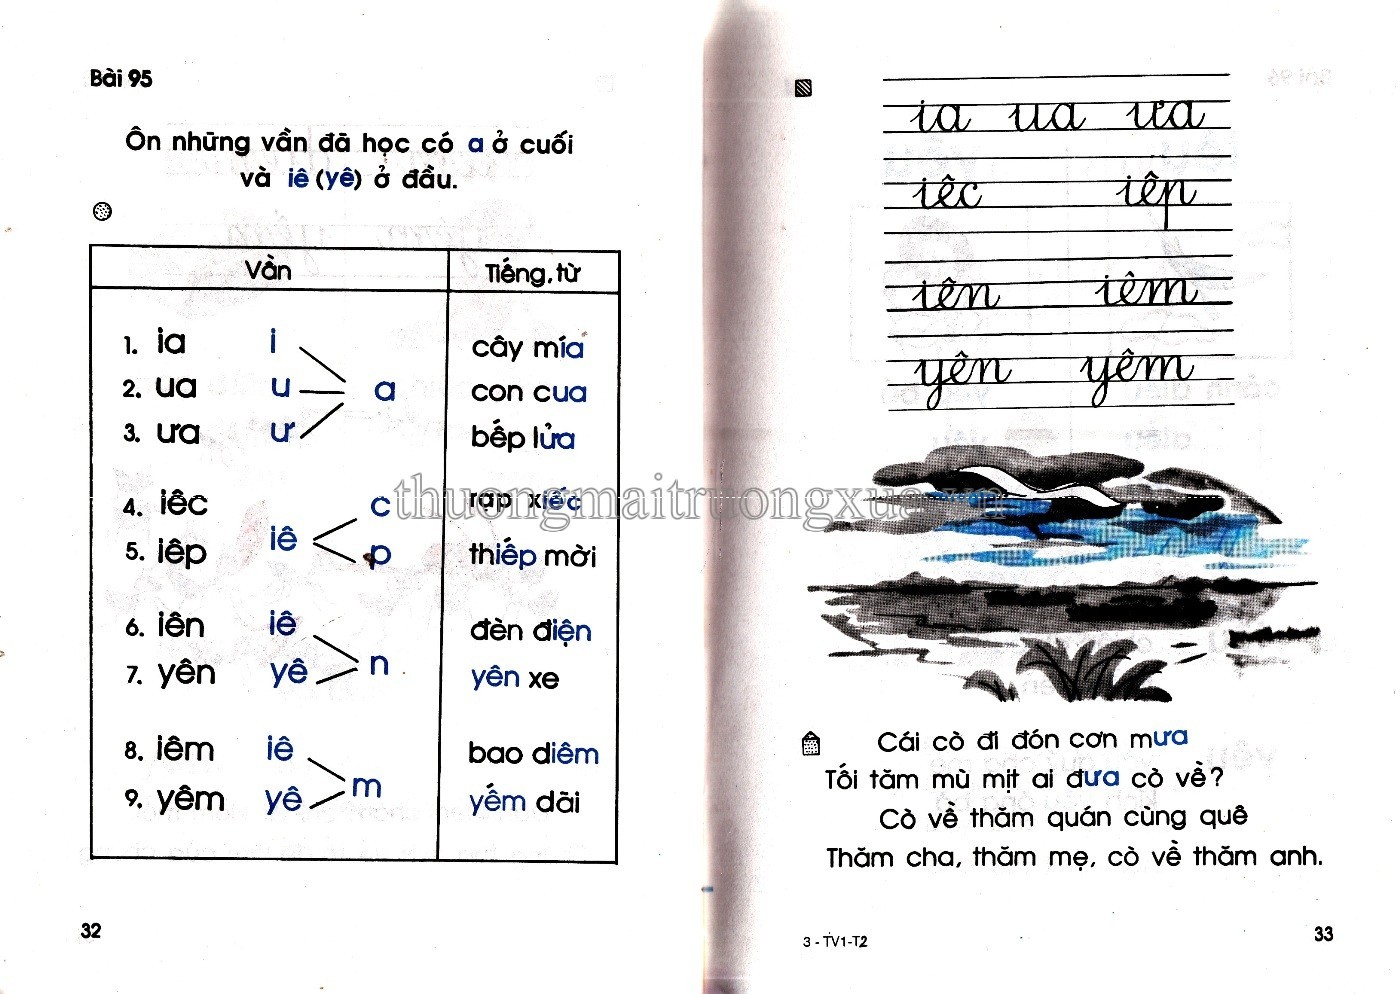 Bài 95
Ôn những vần đã học có a ở cuối
và iê (yê) ở đầu.
Vần Tiếng, từ
1. ia i cây mía
2. ua u a con cua
3. ưa ư bếp lửa
4. iêc c rạp xiếc
iê
5. iêp p thiếp mời
6. iên iê đèn điện
n
7. yên yê yên xe
8. iêm iê bao diêm
m
9. yêm yê yếm dãi
32
ia ua ưa
iêc iêp
iên iêm
yên yêm
Cái cò đi đón cơn mưa
Tối tăm mù mịt ai đưa cò về?
Cò về thăm quán cùng quê
Thăm cha, thăm mẹ, cò về thăm anh.
3 - TV1-T2
33
thuongmaitruongxua.vn